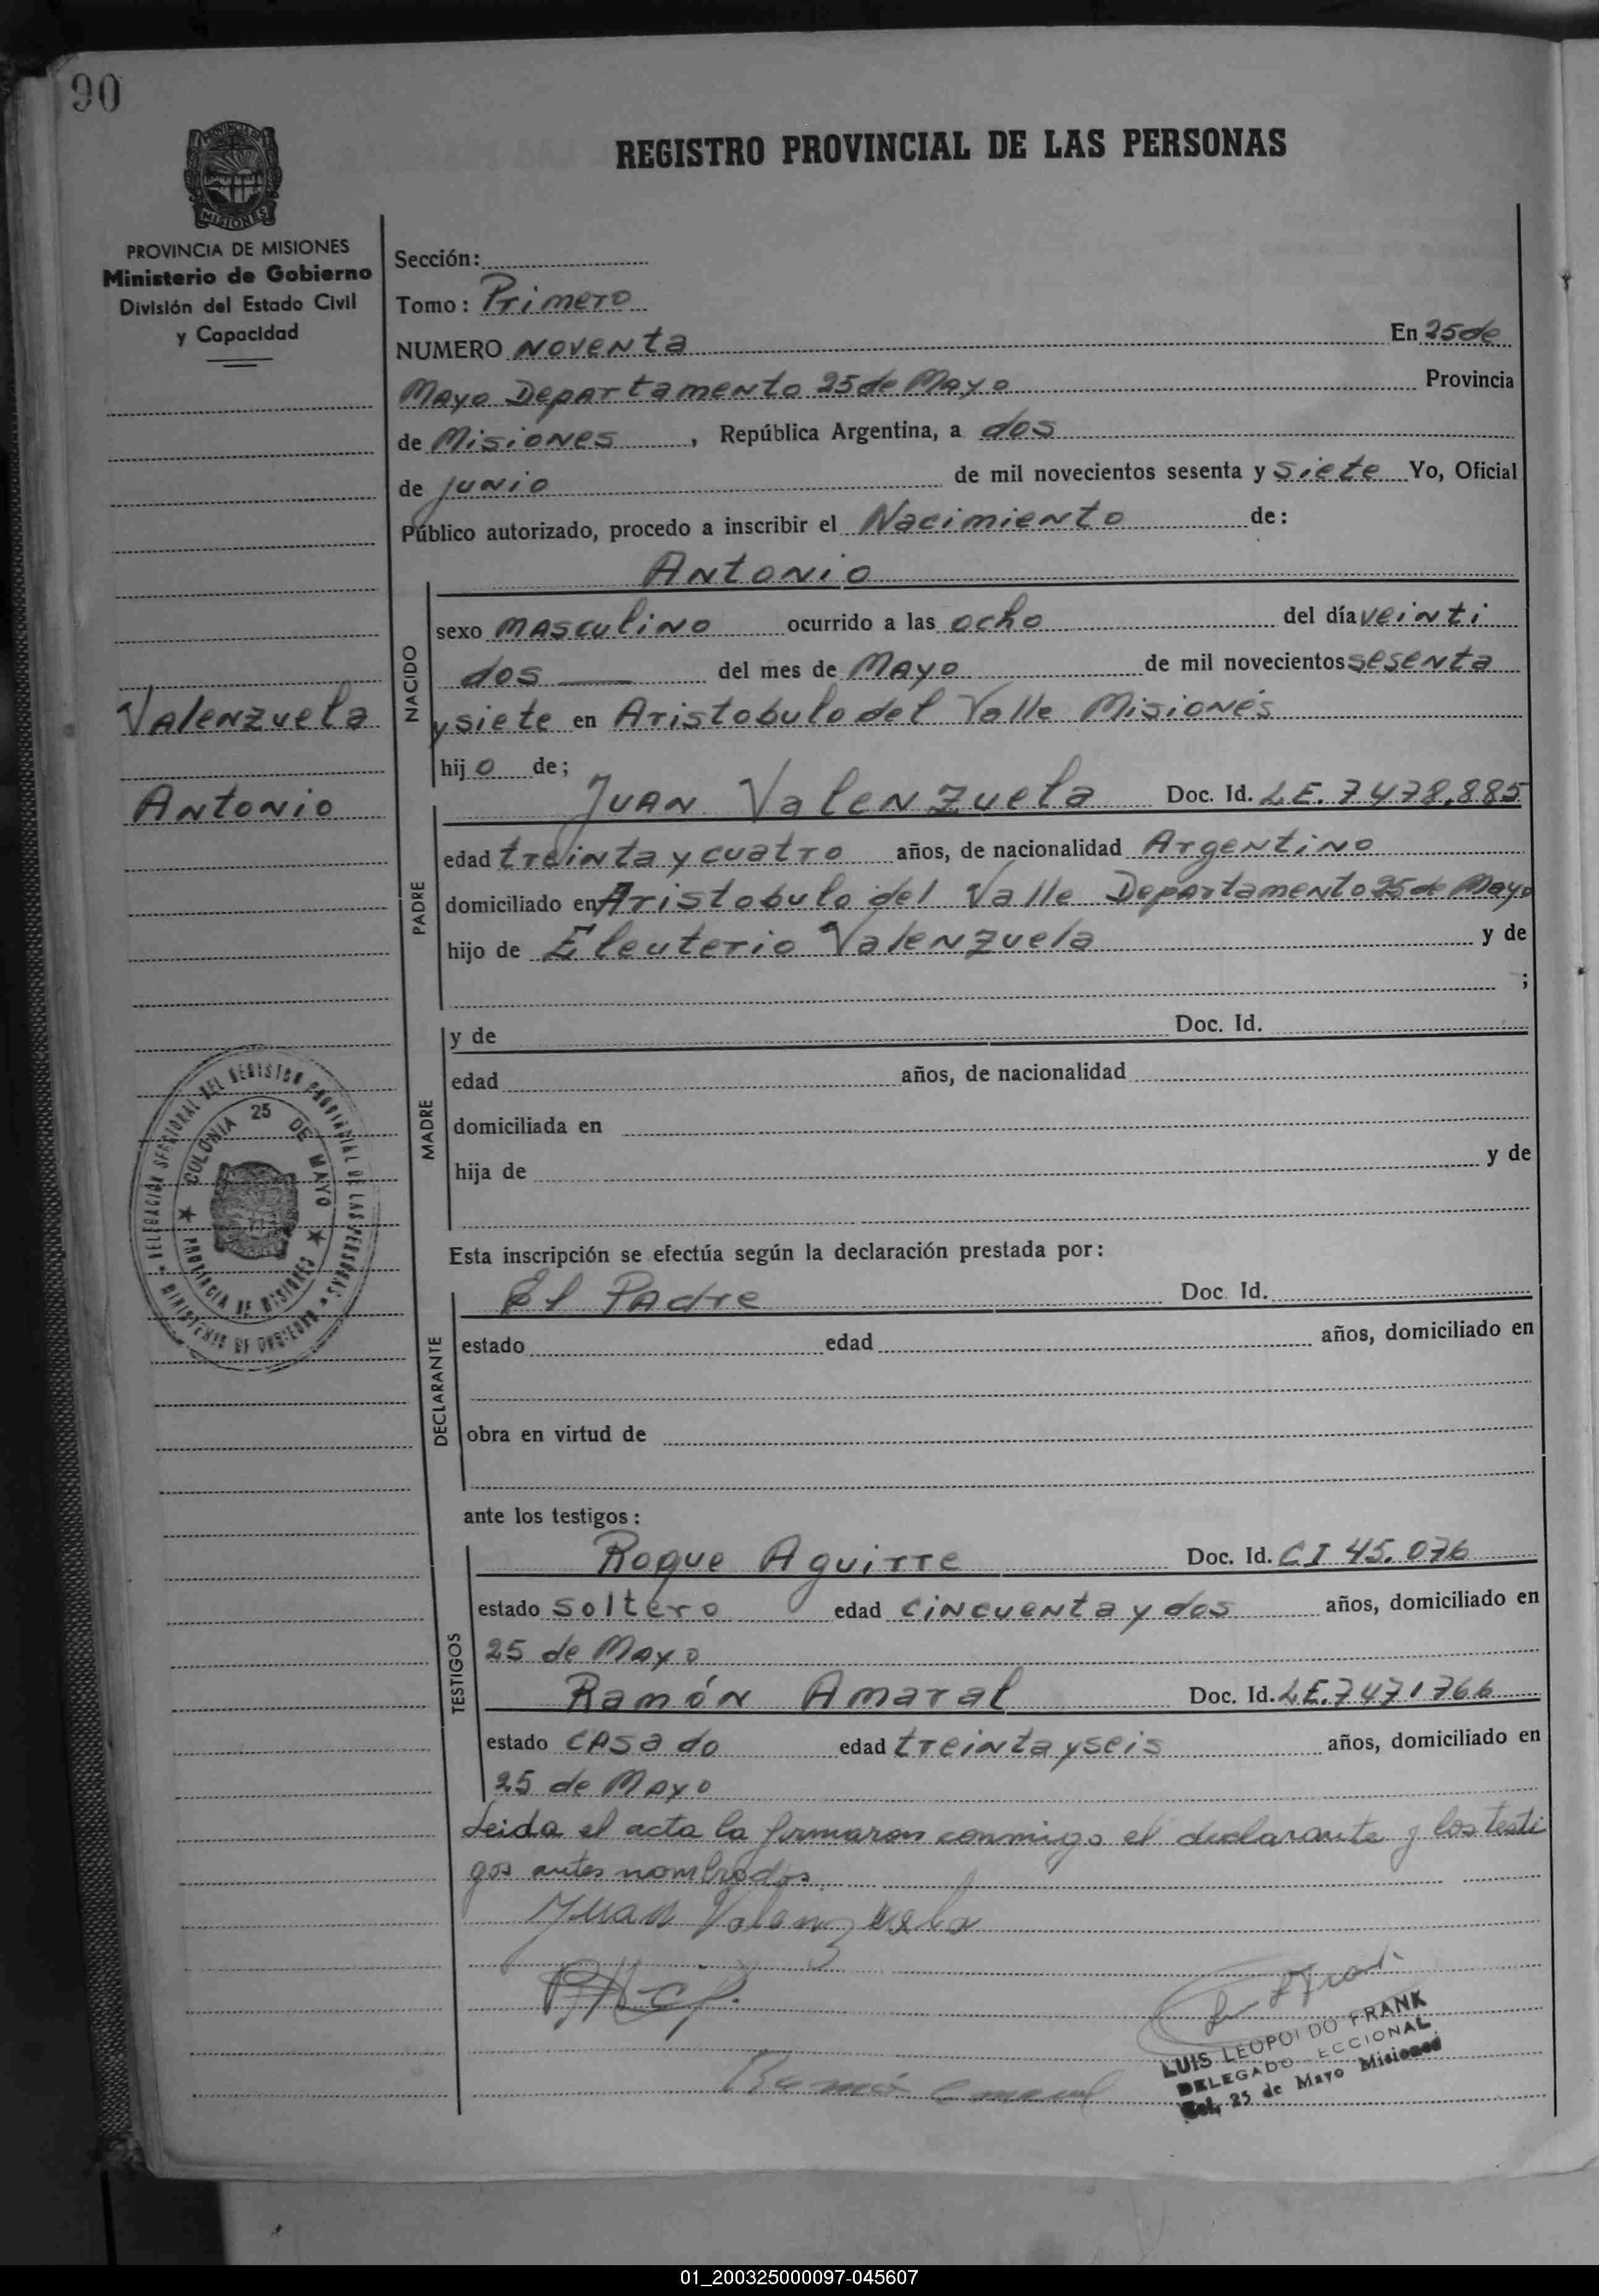 90
REGISTRO PROVINCIAL DE LAS PERSONAS
PROVINCIA DE
MISIONES
PROVINCIA DE MISIONES
Ministerio de Gobierno
División del Estado Civil
y Capacidad
Sección:
Tomo: Primero
NUMERO Noventa En 25 de
Mayo Departamento 25 de Mayo Provincia
de Misiones, República Argentina, a dos
de Junio de mil novecientos sesenta y siete Yo, Oficial
Público autorizado, procedo a inscribir el Nacimiento de:
Antonio
NACIDO
sexo masculino ocurrido a las ocho del día veinti
dos del mes de Mayo de mil novecientos sesenta
y siete en Aristobulo del Valle Misiones
hijo de;
Valenzuela
Antonio
Juan Valenzuela Doc. Id. L.E. 7478.885
PADRE
edad treinta y cuatro años, de nacionalidad Argentino
domiciliado en Aristobulo del Valle Departamento 25 de Mayo
hijo de Eleuterio Valenzuela y de
;
MADRE
y de Doc. Id.
edad años, de nacionalidad
domiciliada en
hija de y de
DELEGACIÓN SECCIONAL DEL REGISTRO PROVINCIAL DE LAS PERSONAS
MINISTERIO DE GOBIERNO
COLONIA 25 DE MAYO
PROVINCIA DE MISIONES
Esta inscripción se efectúa según la declaración prestada por:
El Padre Doc. Id.
DECLARANTE
estado edad años, domiciliado en
obra en virtud de
ante los testigos:
TESTIGOS
Roque Aguirre Doc. Id. C I 45.076
estado soltero edad cincuenta y dos años, domiciliado en
25 de Mayo
Ramón Amaral Doc. Id. L.E. 7471766
estado casado edad treinta y seis años, domiciliado en
25 de Mayo
Leida el acta la firmaron conmigo el declarante y los testi
gos antes nombrados.
Juan Valenzuela
LUIS LEOPOLDO FRANK
DELEGADO SECCIONAL
Col. 25 de Mayo Misiones
01_200325000097-045607